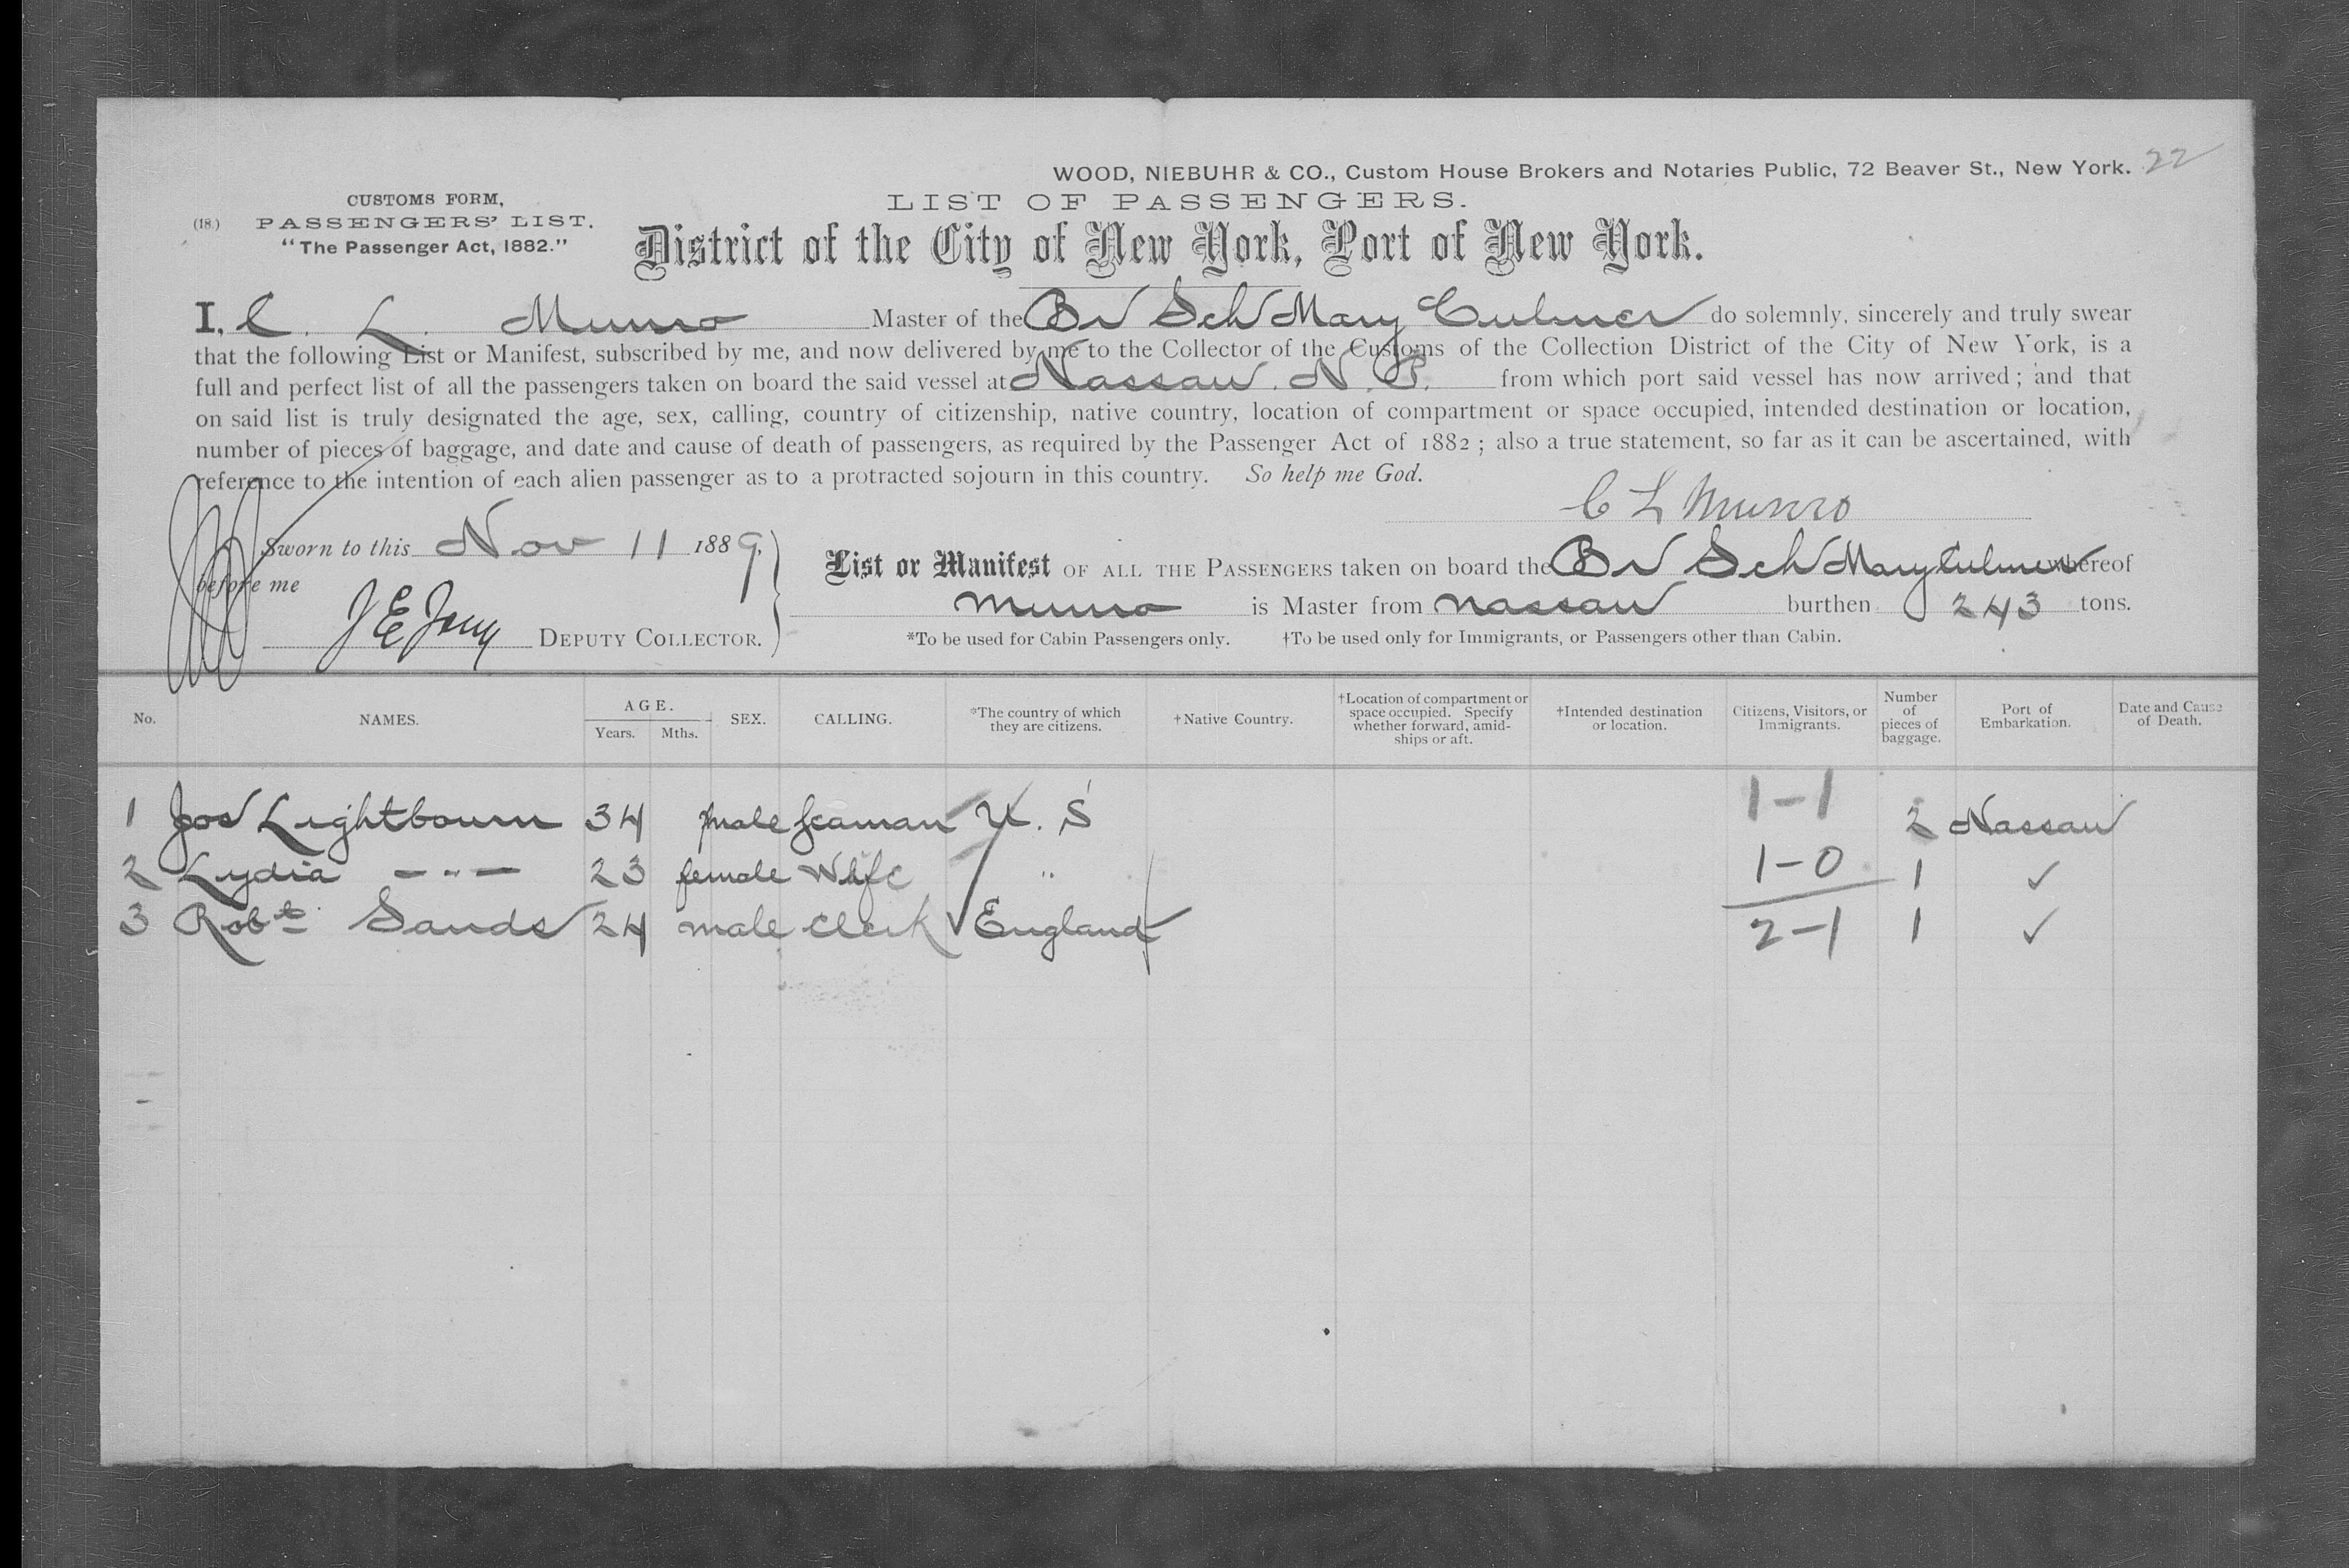 WOOD, NIEBUHR & CO., Custom House Brokers and Notaries Public, 72 Beaver St., New York. 22
CUSTOMS FORM,
(18.) PASSENGERS' LIST.
"The Passenger Act, 1882."
LIST OF PASSENGERS.
District of the City of New York, Port of New York.
I, C. L. Munro Master of the Br Sch Mary Culmer do solemnly, sincerely and truly swear
that the following List or Manifest, subscribed by me, and now delivered by me to the Collector of the Customs of the Collection District of the City of New York, is a
full and perfect list of all the passengers taken on board the said vessel at Nassau. N. P. from which port said vessel has now arrived; and that
on said list is truly designated the age, sex, calling, country of citizenship, native country, location of compartment or space occupied, intended destination or location,
number of pieces of baggage, and date and cause of death of passengers, as required by the Passenger Act of 1882; also a true statement, so far as it can be ascertained, with
reference to the intention of each alien passenger as to a protracted sojourn in this country. So help me God.
C L Munro
Sworn to this Nov 11 1889,
before me
J E Jony DEPUTY COLLECTOR.
List or Manifest OF ALL THE PASSENGERS taken on board the Br Sch Mary Culmer whereof
Munro is Master from Nassau burthen 243 tons.
*To be used for Cabin Passengers only. †To be used only for Immigrants, or Passengers other than Cabin.
No. NAMES. AGE. Years. Mths. SEX. CALLING. *The country of which they are citizens. †Native Country. †Location of compartment or space occupied. Specify whether forward, amidships or aft. †Intended destination or location. Citizens, Visitors, or Immigrants. Number of pieces of baggage. Port of Embarkation. Date and Cause of Death.
1 Jos Lightbourn 34 male seaman U. S 1-1 2 Nassau
2 Lydia — " — 23 female Wife " 1-0 1 ✓
3 Robt Sands 24 male Clerk England 2-1 1 ✓